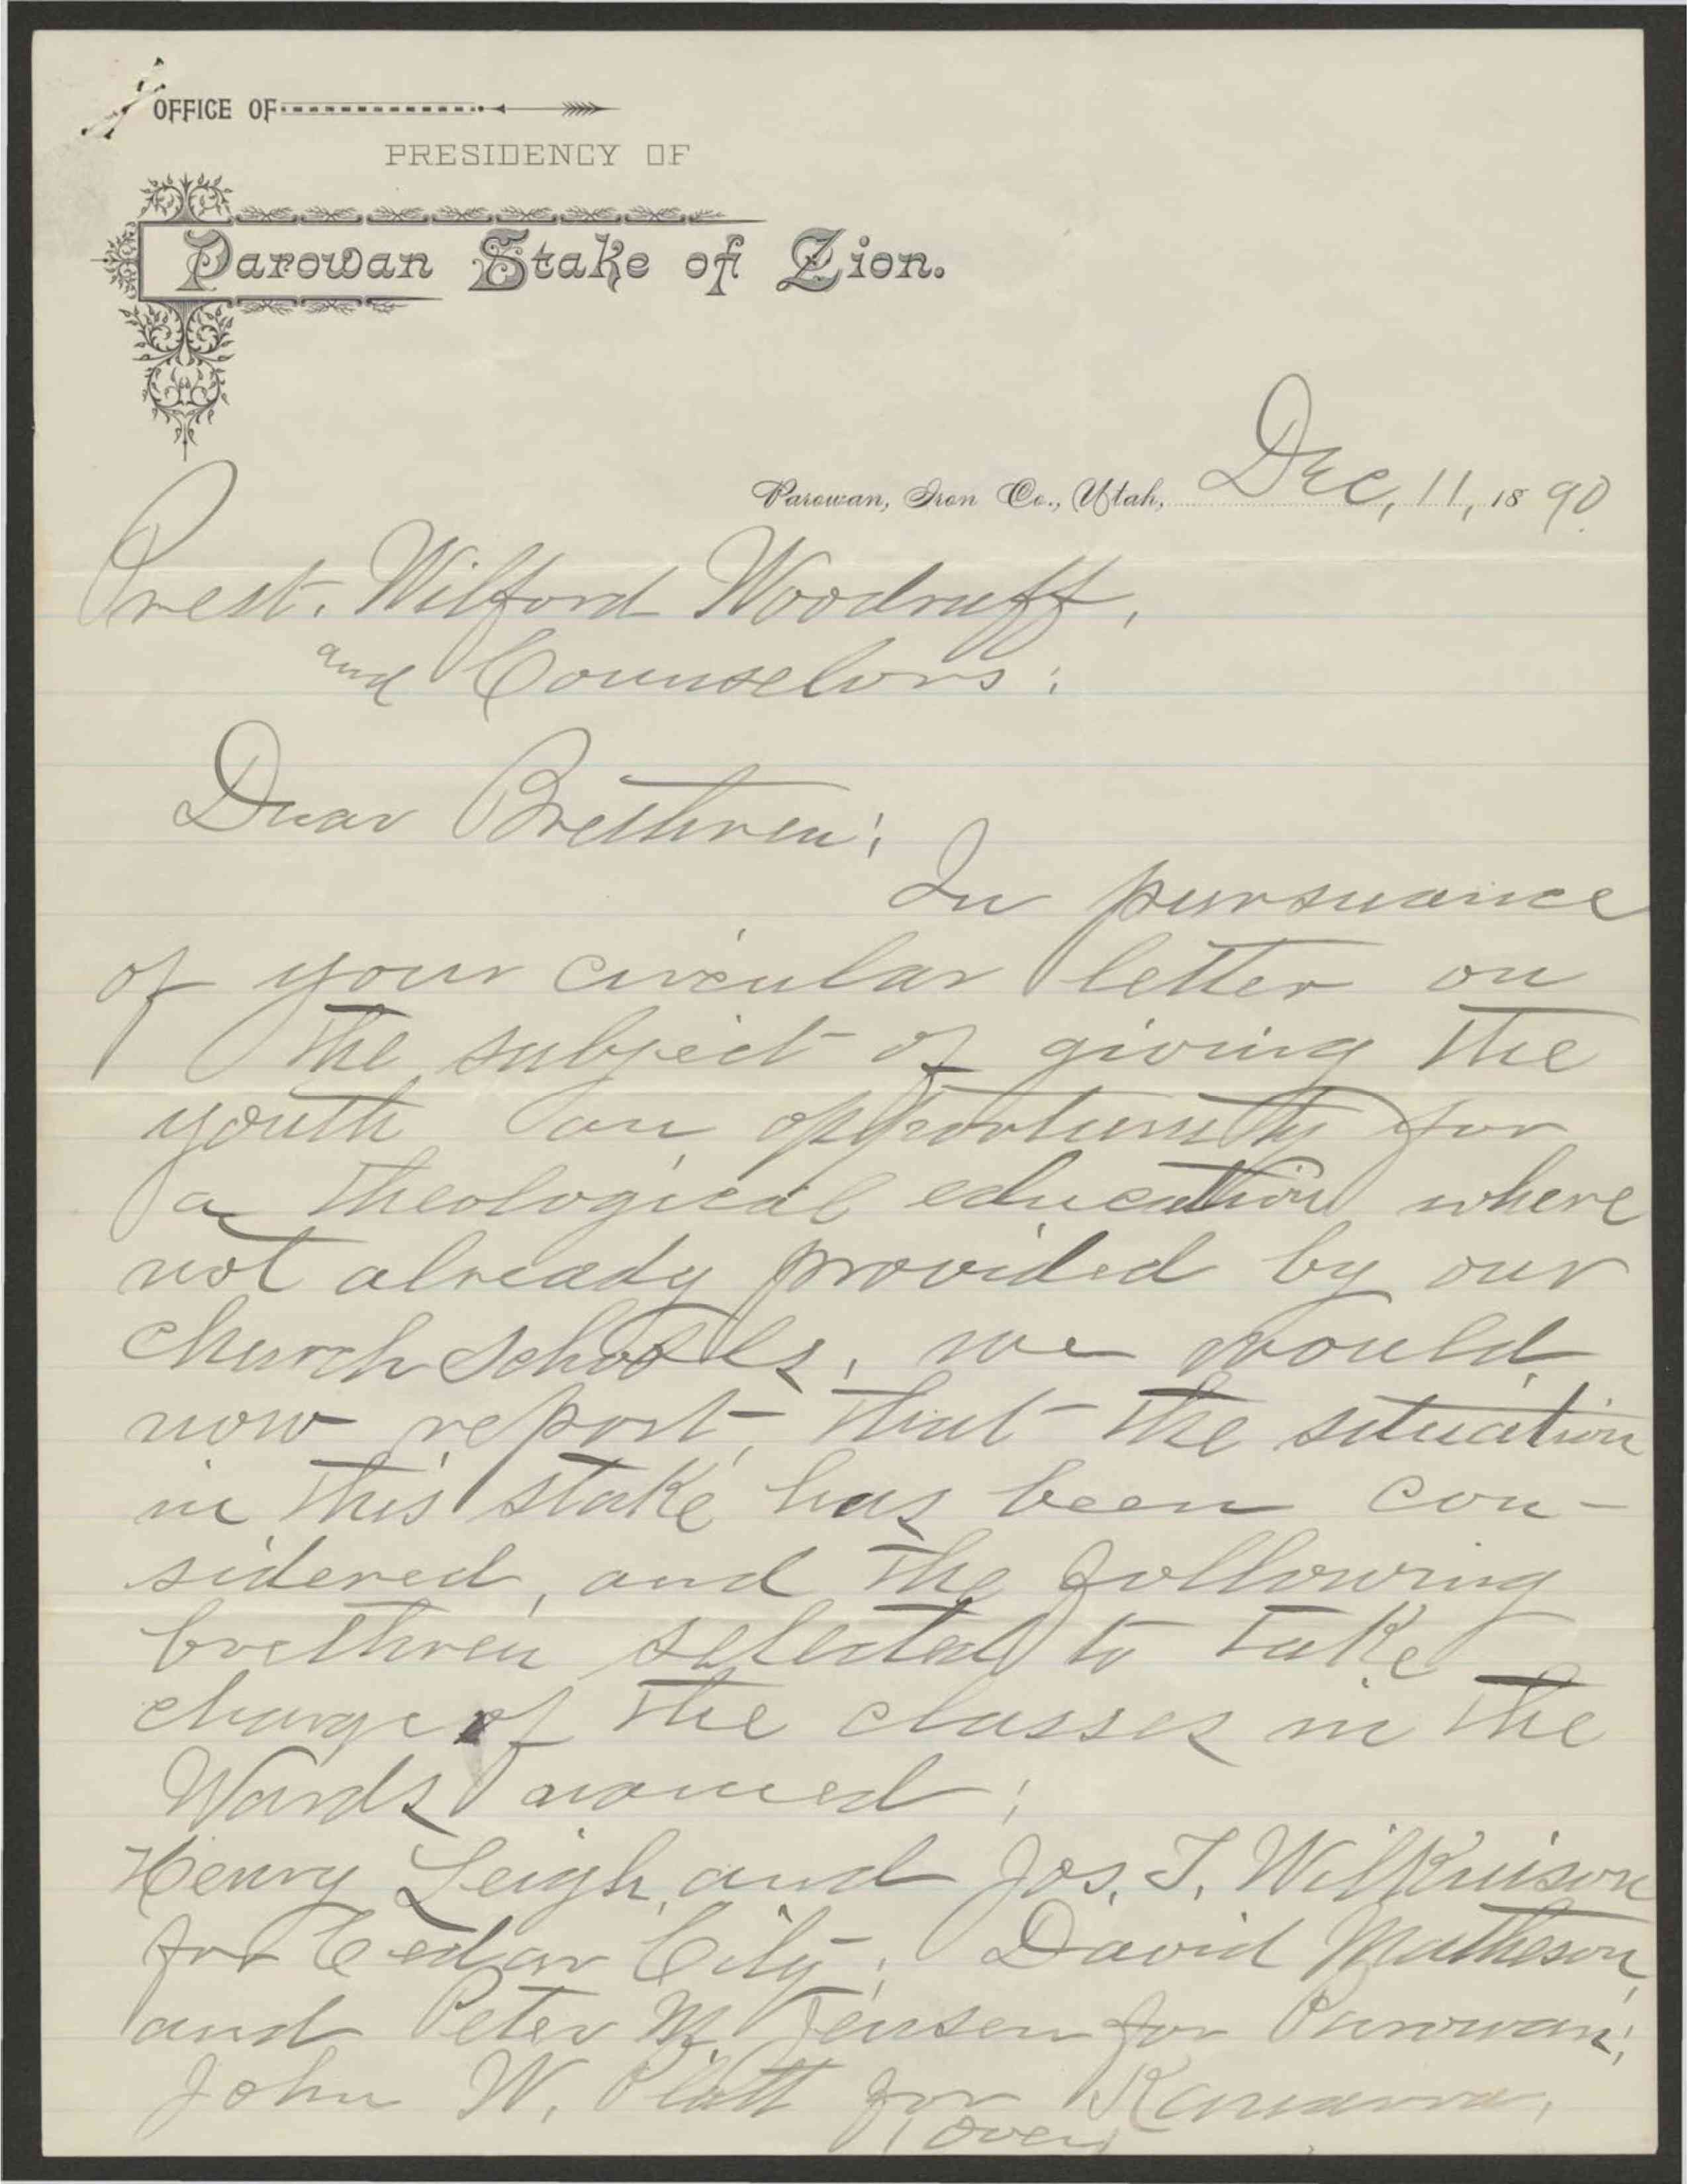 OFFICE OF
PRESIDENCY OF
Parowan Stake of Zion.
Parowan, Iron Co., Utah, Dec, 11, 1890.
Prest. Wilford Woodruff,
and Counselors:
Dear Brethren:
In pursuance
of your circular letter on
the subject of giving the
youth an opportunity for
a theological education where
not already provided by our
church schools, we would
now report, that the situation
in this stake has been con-
sidered, and the following
brethren selected to take
charge of the classes in the
Wards named:
Henry Leigh, and Jos. T. Wilkinson
for Cedar City; David Matheson,
and Peter M. Jensen for Parowan;
John W. Platt for Kanarra,
(over)